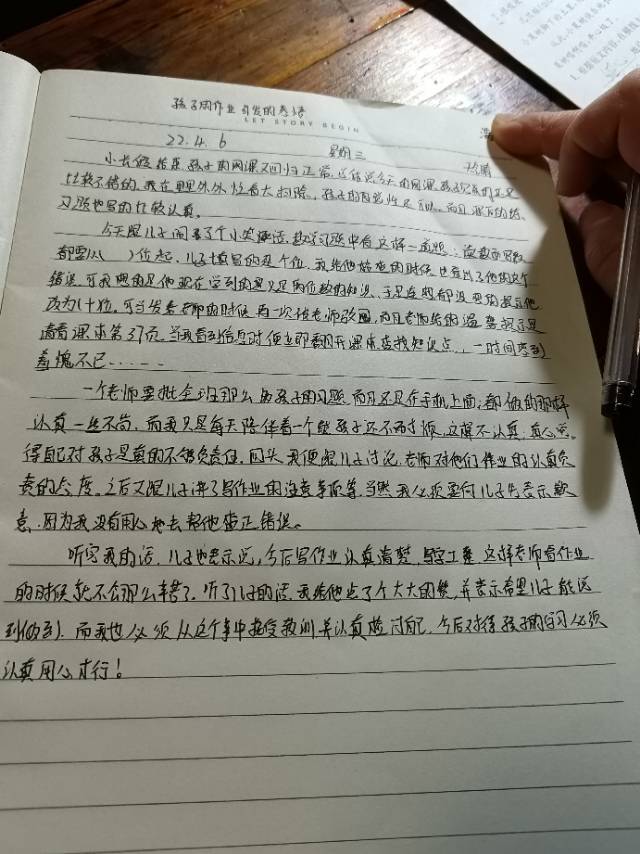 孩子的作业引发的感悟
LET STORY BEGIN
22.4.6 星期三 晴
小长假结束孩子的网课又回归正常,今天的网课孩子
比较不错的,我在里里外外忙着大扫除,孩子的自觉性
习题也写的比较认真。
今天跟儿子闹了个小笑话,数学习题中有这样一道题:读数和写数
都要从( )位起,儿子填写的是个位,我给他检查的时候也看出了他的这个
错误,可我想的是他现在学到的只是两位数的知识,于是连想都没想的就让他
改为(十)位,可当发给老师的时候,再一次被老师驳回,而且老师给的温馨提示是
请看课本第37页,当我看到信息时便立即翻开课本查找知识点,一时间感到
羞愧不已……
一个老师要批全班那么多孩子的习题,而且还是在手机上面,都做的那样
认真一丝不苟,而我只是每天陪伴着一个熊孩子还不耐烦,这样不认真,真心觉
得自己对孩子是真的不够负责任,回头我便跟儿子讨论,老师对他们作业的认真负
责的态度,之后又跟儿子讲了写作业的注意事项等,当然我必须要向儿子先表示歉
意,因为我没有用心地去帮他指正错误。
听完我的话,儿子也表示说,今后写作业认真清楚,写字工整,这样老师看作业
的时候就不会那么辛苦了,听了儿子的话,我给他点了个大大的赞,并表示希望儿子能说
到做到,而我也必须从这个事中接受教训并认真检讨自己,今后对待孩子的学习必须
认真用心才行!